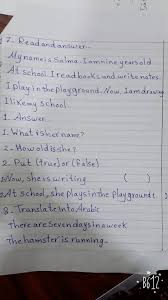 7. Read and answer--
My name is Salma. I am nine years old
At school I read books and write notes.
I play in the playground. Now, I am drawing
I like my school.
1. Answer--
1. What is her name?
2. How old is she?
2. Put (true) or (false)
Now, she is writing ( )
At school, she plays in the playground (
8. Translate to Arabic
there are seven days in a week
the hamster is running.